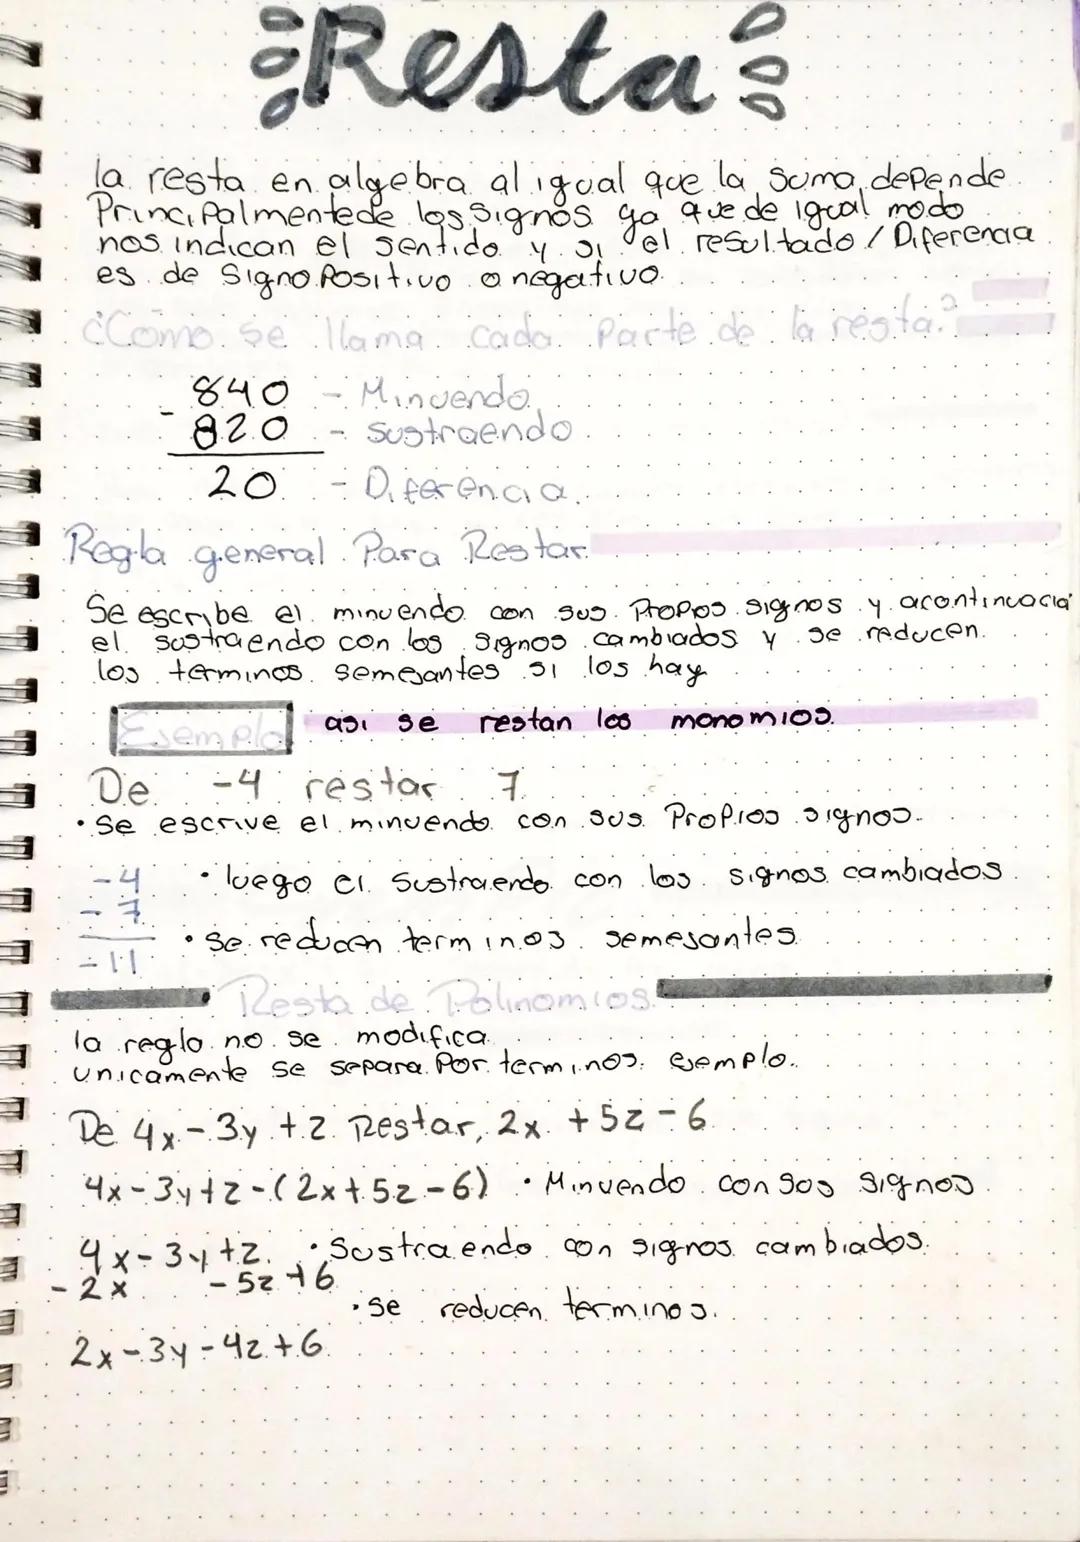 Resta
la resta en algebra al igual que la suma, depende
Principalmentede los signos ya que de igual modo
nos indican el sentido y si el resultado / Diferencia
es de Signo Positivo o negativo.
¿Cómo se llama cada Parte de la resta?
840 - Minuendo
- 820 - Sustraendo
20 - Diferencia
Regla general Para Restar
Se escribe el minuendo con sus Propios signos y acontinuacia
el sustraendo con los signos cambiados y se reducen
los terminos semejantes si los hay
Ejemplo asi se restan los monomios.
De -4 restar 7
• Se escrive el minuendo con sus Propios signos.
-4 • luego el Sustraendo con los signos cambiados
- 7
• Se reducen terminos semejantes
-11
Resta de Polinomios
la regla no se modifica
unicamente se separa Por terminos. ejemplo.
De 4x-3y+z Restar, 2x +5z-6
4x-3y+z-(2x+5z-6) • Minuendo con sos signos
4x-3y+z • Sustraendo con signos cambiados.
-2x -5z+6
• se reducen terminos.
2x-3y-4z+6